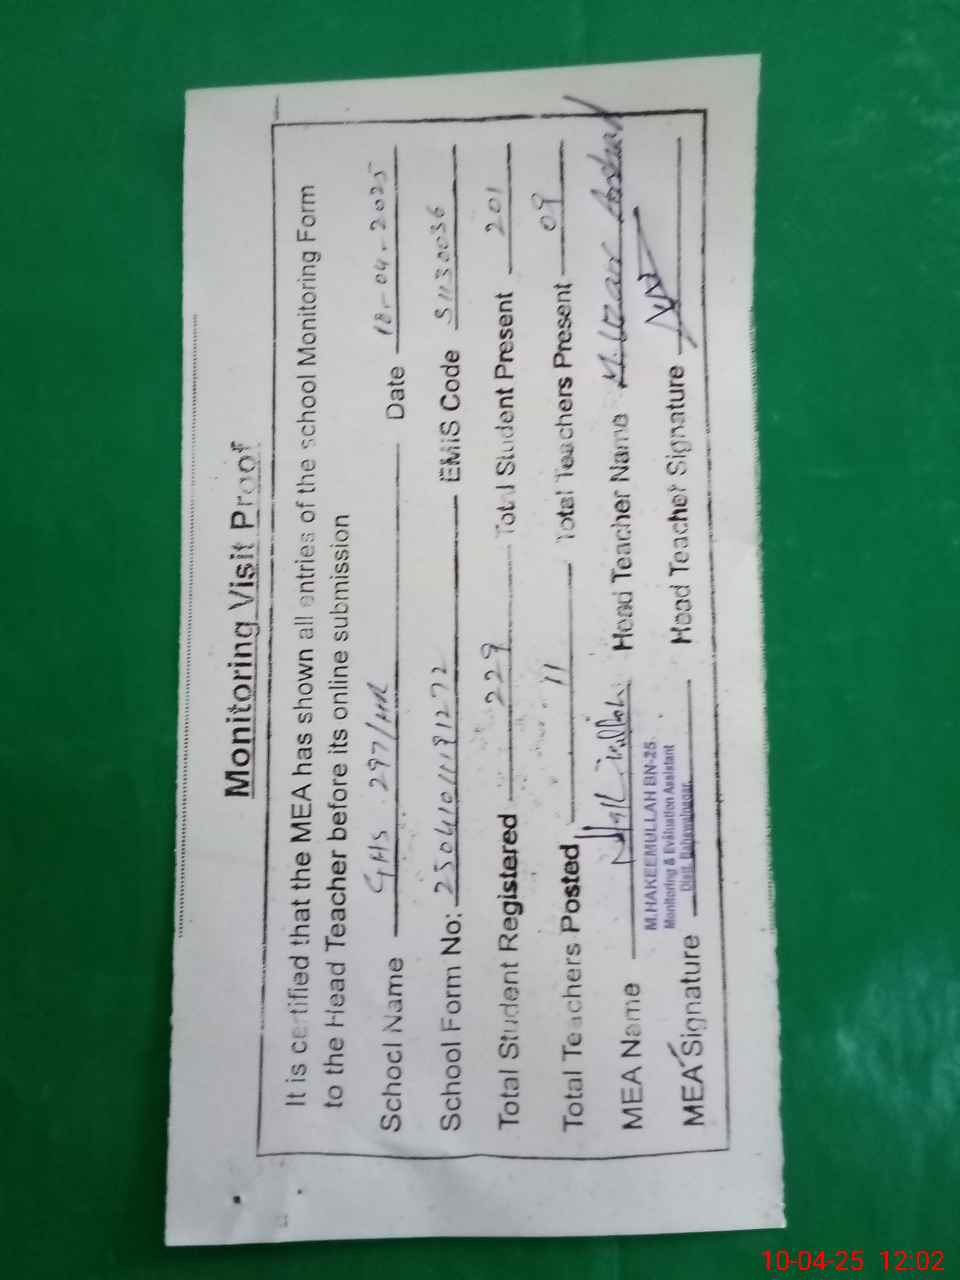 Monitoring Visit Proof
It is certified that the MEA has shown all entries of the school Monitoring Form
to the Head Teacher before its online submission
School Name GHS 297/HR Date 10-04-2025
School Form No: 2504101191272 EMIS Code 31130036
Total Student Registered 229 Total Student Present 201
Total Teachers Posted 11 Total Teachers Present 09
MEA Name Head Teacher Name
M.HAKEEMULLAH BN-25
Monitoring & Evaluation Assistant
Distt. Bahawalnagar
MEA Signature Head Teacher Signature
10-04-25 12:02